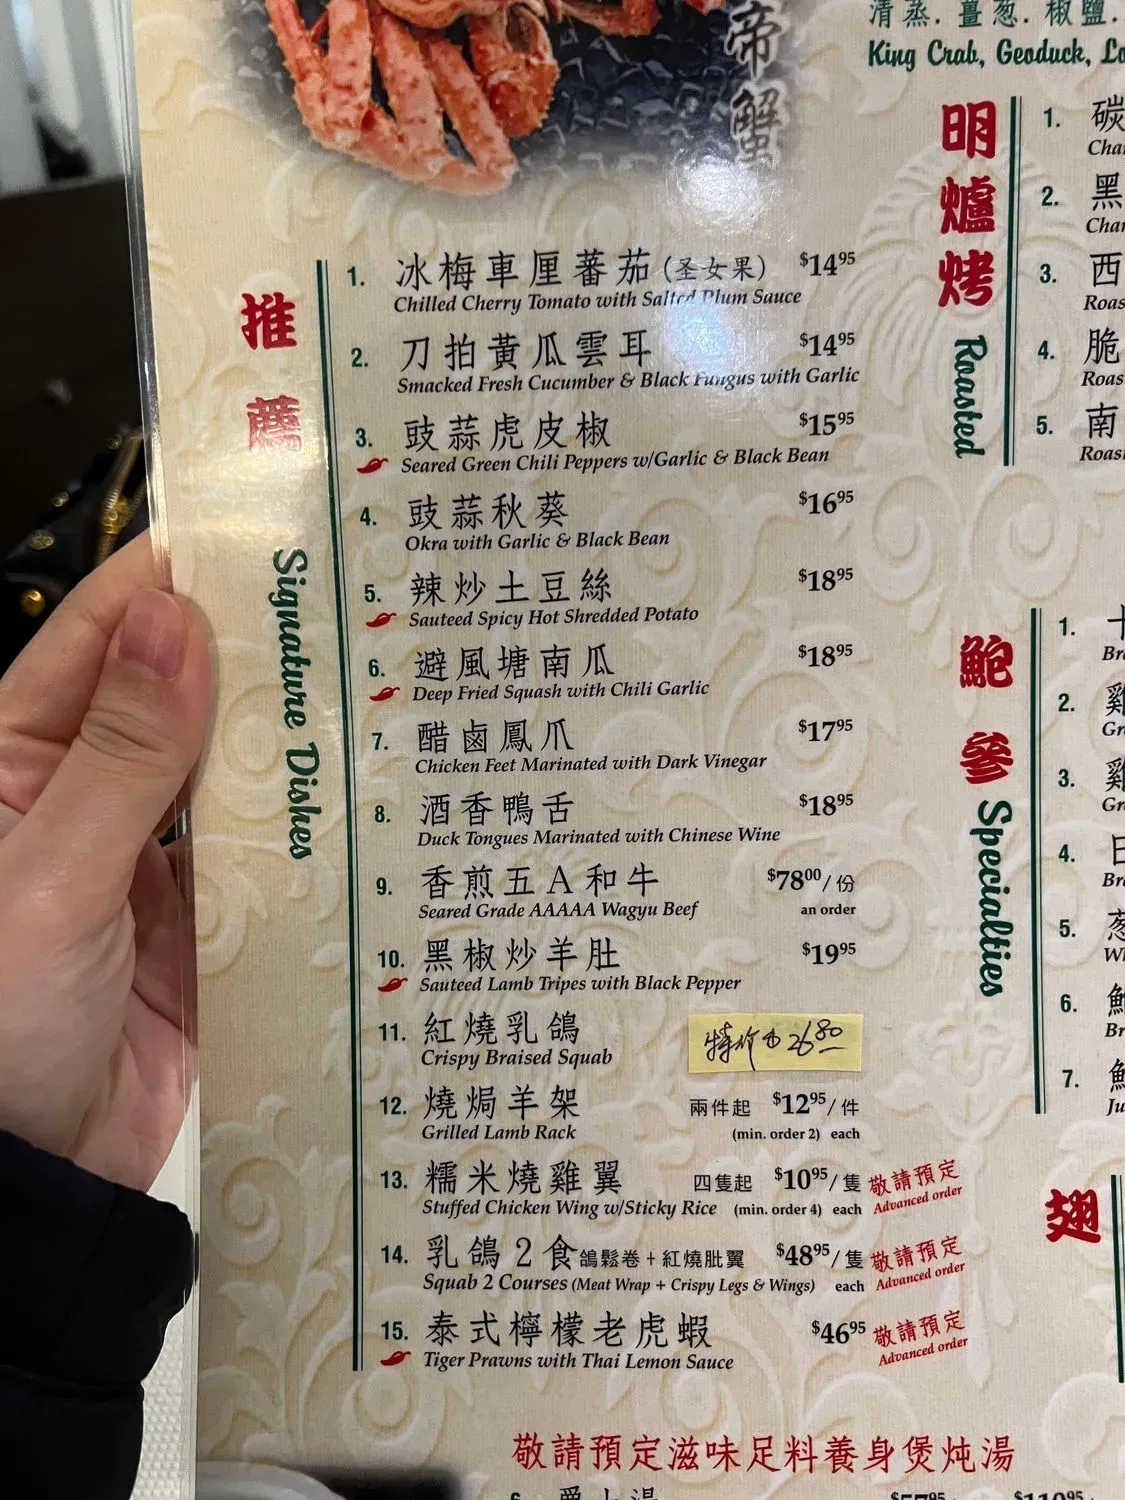 帝蟹
清蒸. 薑葱. 椒鹽.
King Crab, Geoduck,
推薦
Signature Dishes
1. 冰梅車厘蕃茄(圣女果) $14.95
Chilled Cherry Tomato with Salted Plum Sauce
2. 刀拍黃瓜雲耳 $14.95
Smacked Fresh Cucumber & Black Fungus with Garlic
3. 豉蒜虎皮椒 $15.95
Seared Green Chili Peppers w/Garlic & Black Bean
4. 豉蒜秋葵 $16.95
Okra with Garlic & Black Bean
5. 辣炒土豆絲 $18.95
Sauteed Spicy Hot Shredded Potato
6. 避風塘南瓜 $18.95
Deep Fried Squash with Chili Garlic
7. 醋鹵鳳爪 $17.95
Chicken Feet Marinated with Dark Vinegar
8. 酒香鴨舌 $18.95
Duck Tongues Marinated with Chinese Wine
9. 香煎五A和牛 $78.00/份
Seared Grade AAAAA Wagyu Beef an order
10. 黑椒炒羊肚 $19.95
Sauteed Lamb Tripes with Black Pepper
11. 紅燒乳鴿 特价 $26.80
Crispy Braised Squab
12. 燒焗羊架 兩件起 $12.95/件
Grilled Lamb Rack (min. order 2) each
13. 糯米燒雞翼 四隻起 $10.95/隻 敬請預定
Stuffed Chicken Wing w/Sticky Rice (min. order 4) each Advanced order
14. 乳鴿2食鴿鬆卷+紅燒肶翼 $48.95/隻 敬請預定
Squab 2 Courses (Meat Wrap + Crispy Legs & Wings) each Advanced order
15. 泰式檸檬老虎蝦 $46.95 敬請預定
Tiger Prawns with Thai Lemon Sauce Advanced order
敬請預定滋味足料養身煲炖湯
明爐烤
Roasted
1. 碳
2. 黑
3. 西
4. 脆
5. 南
鮑參
Specialties
1.
2. 雞
3. 雞
4. 日
5. 葱
6.
7.
翅